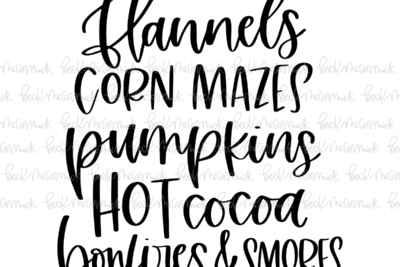 flannels
CORN MAZES
pumpkins
HOT cocoa
bonfires & SMORES